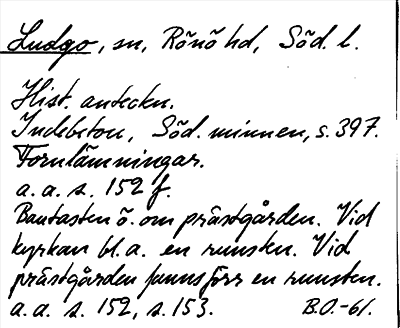 Ludgo, sn, Rönö hd, Söd. l.
Hist. anteckn.
Indebetou, Söd. minnen, s. 397.
Fornlämningar.
a. a. s. 152 f.
Bautasten ö. om prästgården. Vid
kyrkan bl. a. en runsten. Vid
prästgården fanns förr en runsten.
a. a. s. 152, s. 153. B.O.-61.